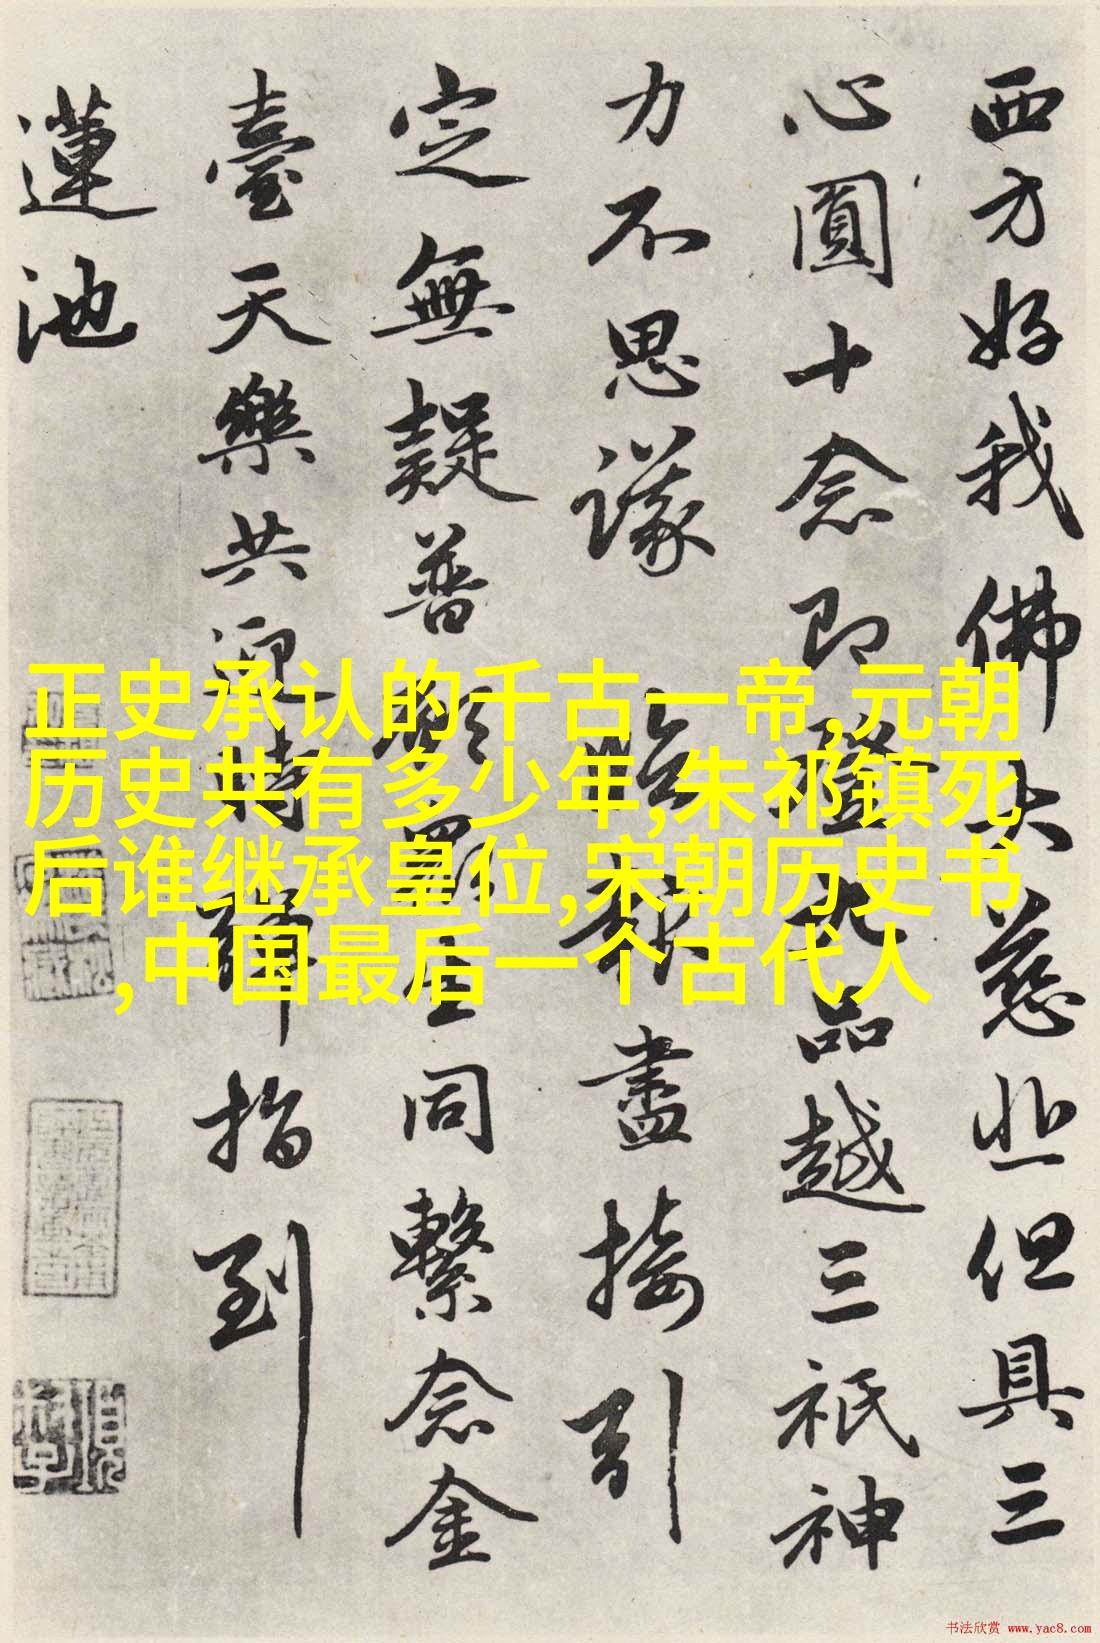 西方好我佛大慈悲但具三
心圓十念即登九品越三祇神
力不思議 臨報盡接引
定無疑普願眾生同繫念金
臺天樂共迎時彈指到
蓮池
正史承认的千古一帝,元朝
历史共有多少年,朱祁镇死
后谁继承皇位,宋朝历史书
,中国最后一个古代人
书法欣赏 www.yac8.com